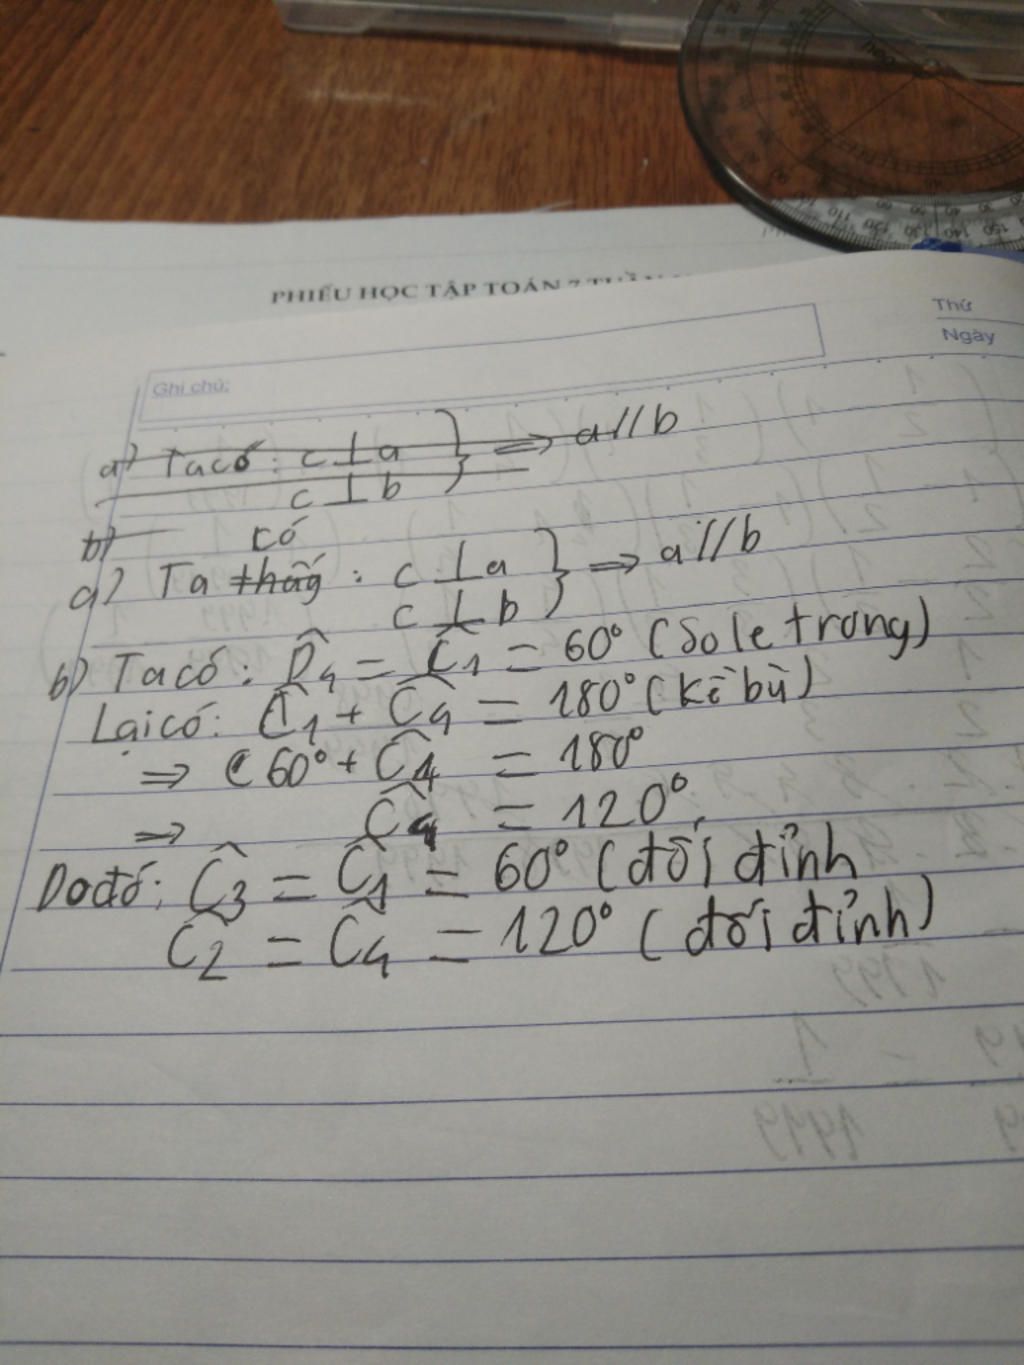 PHIẾU HỌC TẬP TOÁN 7
Thứ
Ngày
Ghi chú:
a) Ta có: c ⊥ a } ⇒ a // b
c ⊥ b
b)
có
a) Ta thấy : c ⊥ a } ⇒ a // b
c ⊥ b
b) Ta có: D̂4 = Ĉ1 = 60° (So le trong)
Lại có: Ĉ1 + Ĉ4 = 180° (Kề bù)
⇒ 60° + Ĉ4 = 180°
⇒ Ĉ4 = 120°.
Do đó: Ĉ3 = Ĉ1 = 60° (đối đỉnh
Ĉ2 = Ĉ4 = 120° (đối đỉnh)